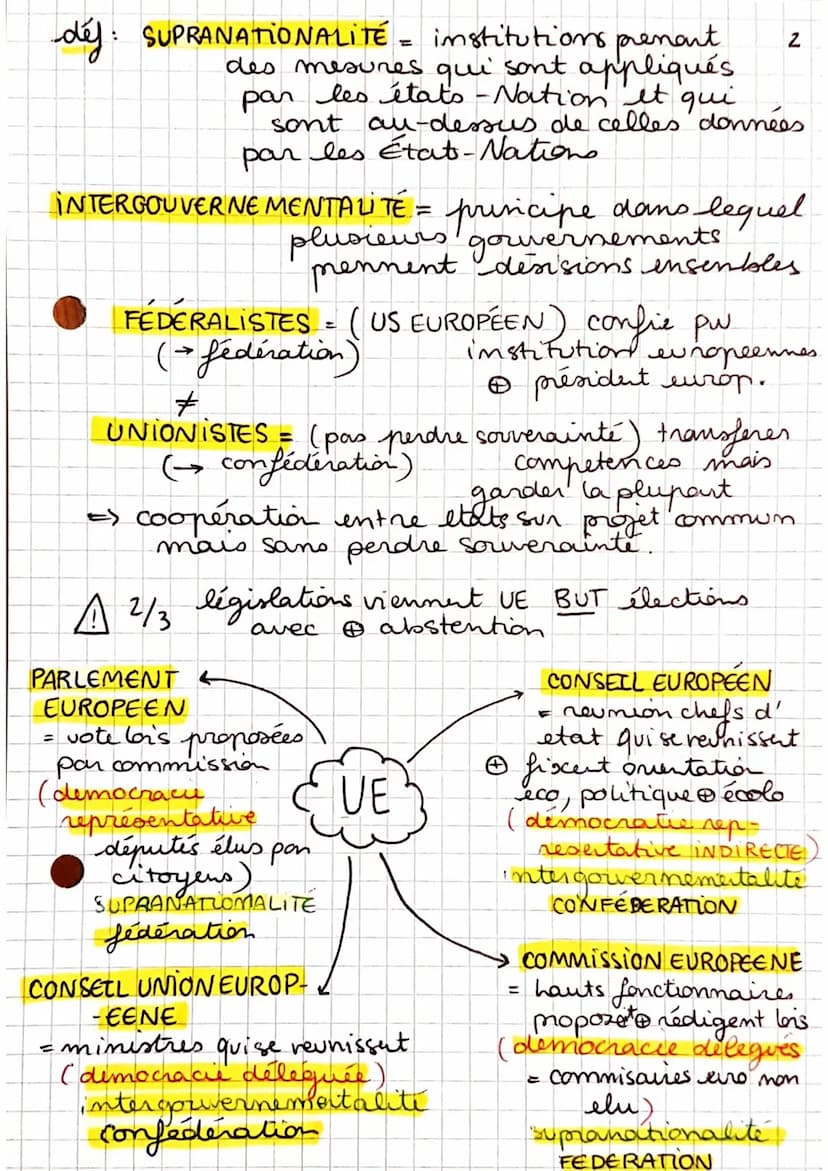 déf : SUPRANATIONALITÉ = institutions prenant
2
des mesures qui sont appliqués
par les états-Nation et qui
sont au-dessus de celles données
par les État-Nations
INTERGOUVERNEMENTALITÉ = principe dans lequel
plusieurs gouvernements
prennent désisions ensembles
FÉDÉRALISTES = ( US EUROPÉEN ) confie pv
(→ fédération) institution europeennes
⊕ président europ.
≠
UNIONISTES = (pas perdre souverainté) transferer
(→ confédération) competences mais
garder la plupart
=> coopération entre etats sur projet commum
mais sans perdre souverainté.
⚠ 2/3 législations viennent UE BUT élections
avec ⊕ abstention
PARLEMENT
EUROPEEN
= vote lois proposées
par commission
(democracie
représentative
députés élus par
citoyens)
SUPRANATIONALITÉ
fédération
UE
CONSEIL EUROPÉEN
= reunion chefs d'
etat qui se reunissent
⊕ fixent orientation
éco, politique ⊕ écolo
( démocratie rep-
resentative INDIRECTE)
intergouvernementalité
CONFÉDERATION
CONSEIL UNION EUROP-
-EENE
= ministres qui se reunissent
(démocracie déléguée)
intergouvernementalité
confédération
COMMISSION EUROPEENE
= hauts fonctionnaires
propozet ⊕ rédigent lois
(démocracie délegués
= commisaires euro non
elu)
supranationalité
FEDERATION